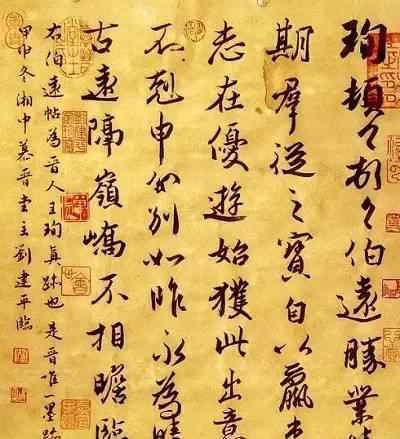 珣頓〻首〻伯遠勝業
期羣從之寶自以羸
志在優遊始獲此出意
不剋申分別如昨永為
古遠隔嶺嶠不相瞻臨
右伯遠帖為晉人王珣真跡也是晉唯一墨跡
甲申冬湘中慕晉堂主劉建平臨